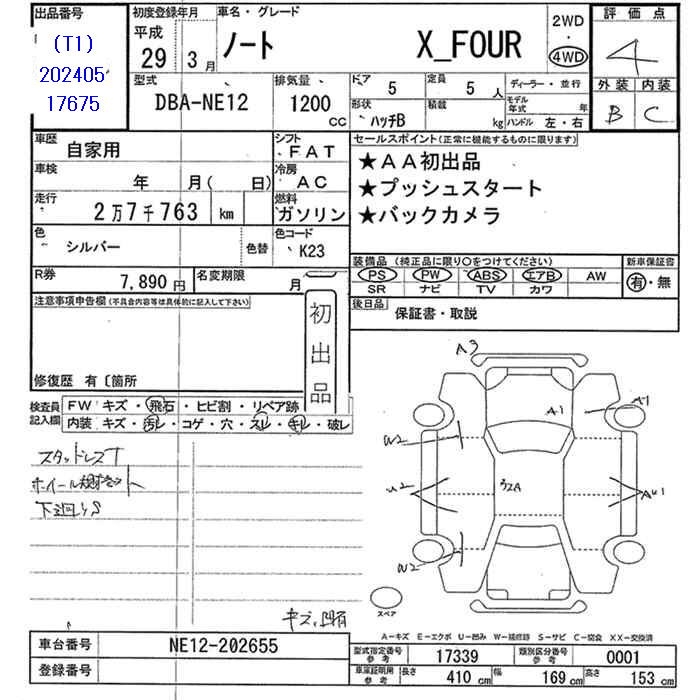 出品番号
(T1)
202405
17675
初度登録年月
平成
29年3月
車名・グレード
ノート X_FOUR
2WD
・
4WD
評価点
4
外装 内装
B C
型式
DBA-NE12
排気量
1200
CC
ドア
5
定員
5人
形状
ハッチB
積載
kg
ディーラー・並行
モデル年式
年
ハンドル 左・右
車歴
自家用
シフト
FAT
車検
年 月( 日)
冷房
AC
走行
2万7千763 km
燃料
ガソリン
色
シルバー
色替
色コード
K23
R券
7,890円
名変期限
月
セールスポイント(正常に機能するものに限ります)
★AA初出品
★プッシュスタート
★バックカメラ
装備品(純正品に限り○をつけてください)
新車保証書
PS PW ABS エアB AW
有・無
SR ナビ TV カワ
後日品
保証書・取説
注意事項申告欄(不具合内容等は具体的に記入して下さい)
初出品
修復歴 有〔箇所
検査員記入欄
FW キズ・飛石・ヒビ割・リペア跡
内装 キズ・汚レ・コゲ・穴・スレ・キレ・破レ
スタッドレスT
下廻りS
A3
A1
A1
W2
U2
W2
スペア
A−キズ E−エクボ U−凹み W−補修跡 S−サビ C−腐食 XX−交換済
車台番号
NE12-202655
登録番号
型式指定番号
参考
17339
類別区分番号
参考
0001
車庫証明用
参考
長さ
410cm
幅
169cm
高さ
153cm